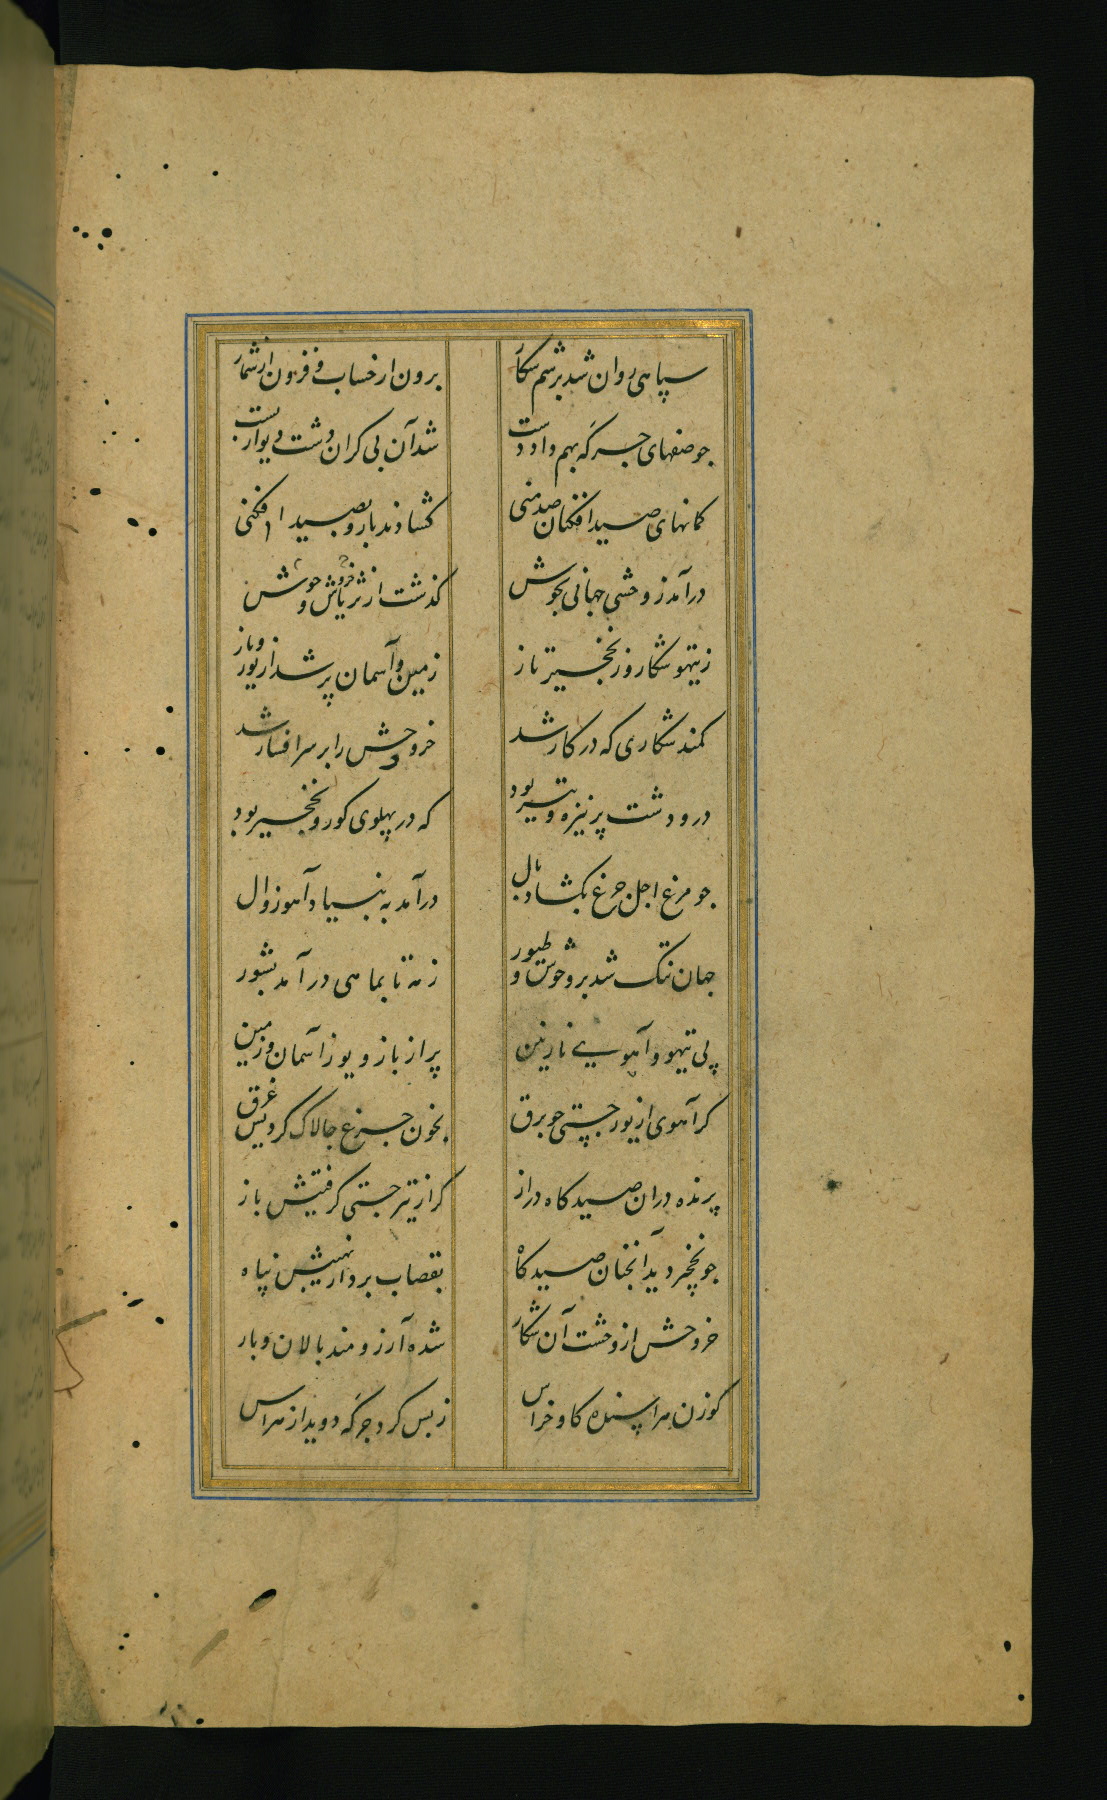 سپاهی روان شد برسم شکار
برون از حساب و فزون از شمار
جو صفهای جرکه بهم داد دست
شد آن بی کران دشت دیوار بست
کمانهای صید افکنان صد منی
کشادند بازو بصید افکنی
درآمد ز وحشی جهانی بجوش
کذشت از ثریاش جوش و خروش
ز تیهو شکار و ز نخجیر تاز
زمین و آسمان پر شد از یوز و باز
کمند شکاری که در کار شد
خر وحش را بر سر افسار شد
درو دشت پر نیزه و تیر بود
که در پهلوی کور و نخجیر بود
جو مرغ اجل جرغ بکشاد بال
درآمد به بنیاد آهو زوال
جهان تنک شد بر وحوش و طیور
ز مه تا بماهی درآمد بشور
پی تیهو و آهوی نازنین
پر از باز و یوز آسمان و زمین
کر آهوی از یوز جستی جو برق
بخون جرغ جالاک کردیش غرق
پرنده دران صیدکاه دراز
کر از تیر جستی کرفتیش باز
جو نخجیر دید آنجنان صیدکاه
بقصاب برد از نهیبش پناه
خر وحش از وحشت آن شکار
شده آرزومند پالان و بار
کوزن هراسنده کاو خراس
ز بس کرد جرکه دوید از هراس